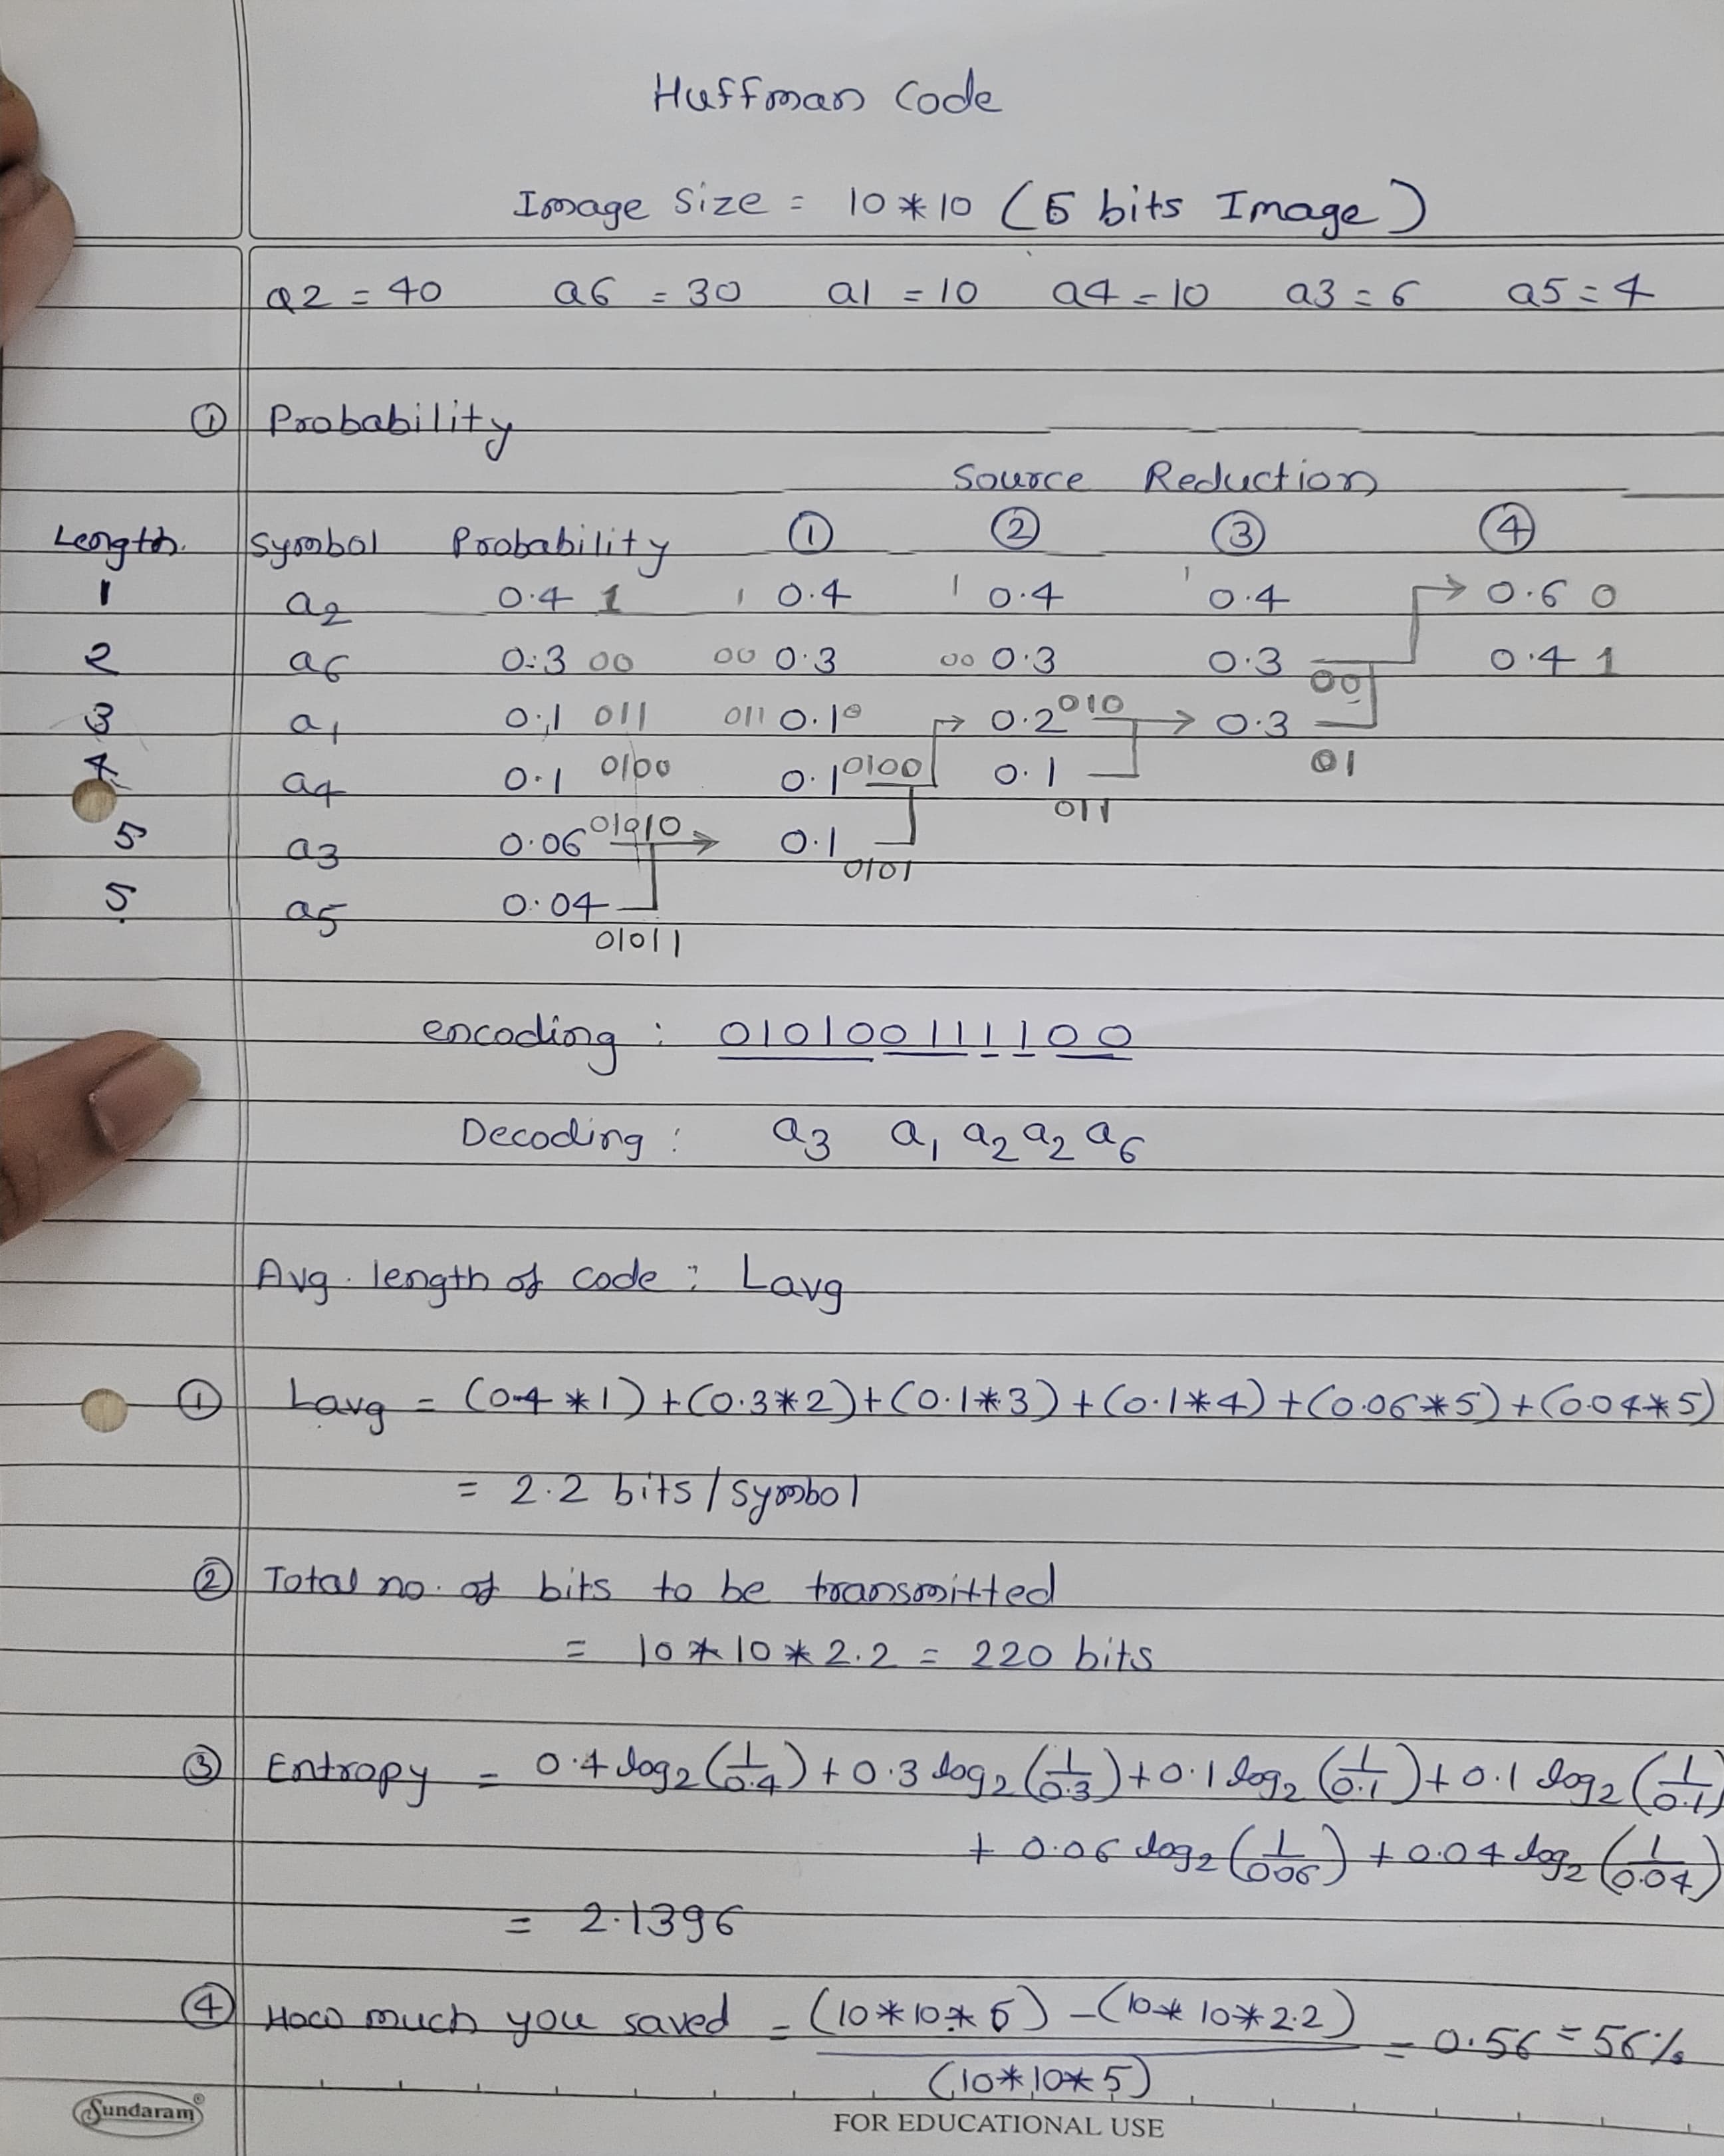 Huffman Code
Image Size = 10*10 (5 bits Image)
a2 = 40 a6 = 30 a1 = 10 a4 = 10 a3 = 6 a5 = 4
① Probability
Source Reduction
Length. Symbol Probability ① ② ③ ④
1 a2 0.4 1 1 0.4 1 0.4 1 0.4 → 0.6 0
2 a6 0.3 00 00 0.3 00 0.3 0.3 00 0.4 1
3 a1 0.1 011 011 0.10 → 0.2 010 → 0.3 01
4 a4 0.1 0100 0.1 0100 0.1 011
5 a3 0.06 01010 → 0.1 0101
5 a5 0.04 01011
encoding : 010100111100
Decoding : a3 a1 a2 a2 a6
Avg. length of code : Lavg
① Lavg = (0.4*1)+(0.3*2)+(0.1*3)+(0.1*4)+(0.06*5)+(0.04*5)
= 2.2 bits/symbol
② Total no. of bits to be transmitted
= 10*10*2.2 = 220 bits
③ Entropy = 0.4 log2(1/0.4) + 0.3 log2(1/0.3) + 0.1 log2(1/0.1) + 0.1 log2(1/0.1)
+ 0.06 log2(1/0.06) + 0.04 log2(1/0.04)
= 2.1396
④ How much you saved = (10*10*5) - (10*10*2.2) / (10*10*5) = 0.56 = 56%
Sundaram®
FOR EDUCATIONAL USE